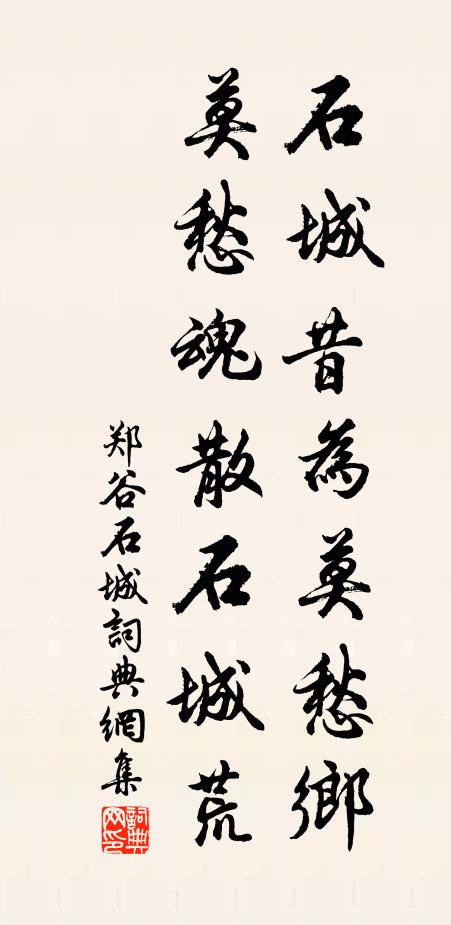 石城昔為莫愁鄉
莫愁魂散石城荒
郑谷石城詞典網集
詞典網印